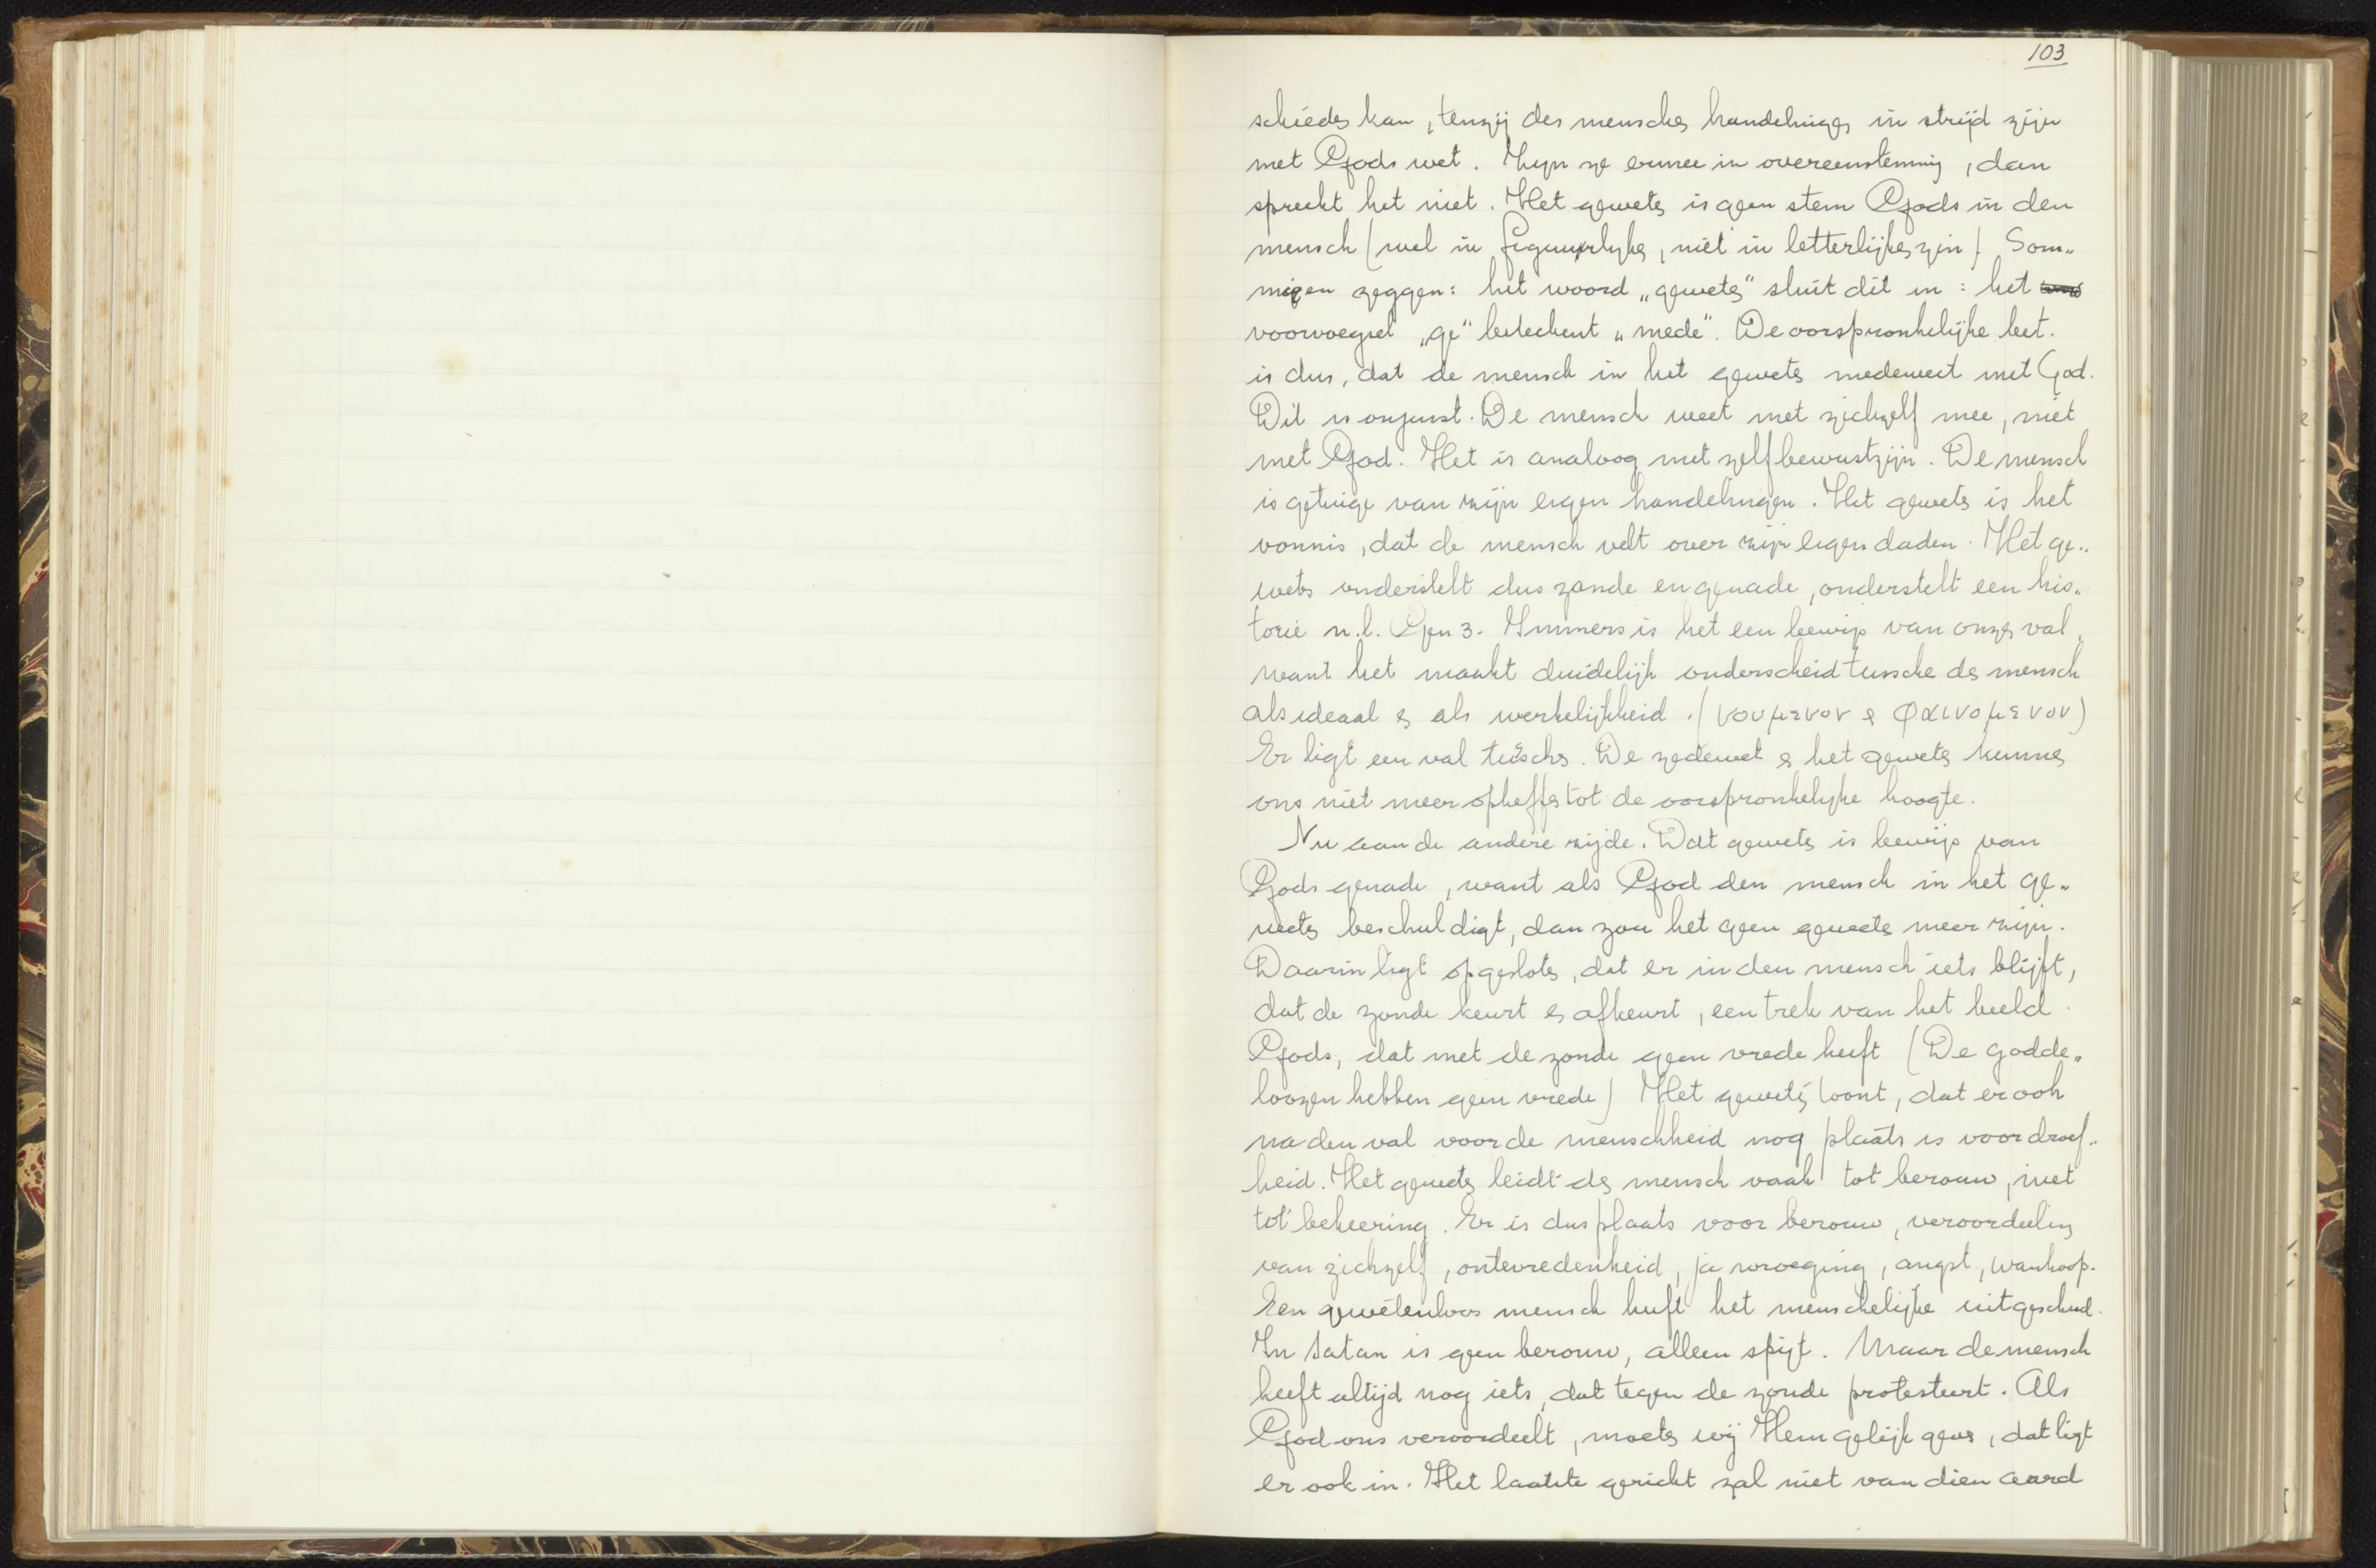 103
schieden kan, tenzij des menschen handelingen in strijd zijn
met Gods wet. Zijn ze ermee in overeenstemming, dan
spreekt het niet. Het geweten is geen stem Gods in den
mensch (wel in figuurlijken, niet in letterlijken zin) Som„
migen zeggen: het woord „geweten" sluit dit in: het
voorvoegsel „ge" beteekent „mede". De oorspronkelijke bet.
is dus, dat de mensch in het geweten medeweet met God.
Dit is onjuist. De mensch weet met zichzelf mee, niet
met God. Het is analoog met zelfbewustzijn. De mensch
is getuige van zijn eigen handelingen. Het geweten is het
vonnis, dat de mensch velt over zijn eigen daden. Het ge„
weten onderstelt dus zonde en genade, onderstelt een his„
torie n.l. Gen 3. Immers is het een bewijs van onzen val,
want het maakt duidelijk onderscheid tussche den mensch
als ideaal en als werkelijkheid. (νουμενον en φαινομενον)
Er ligt een val tusschen. De zedewet en het geweten kunnen
ons niet meer opheffen tot de oorspronkelijke hoogte.
Nu aan de andere zijde. Dat geweten is bewijs van
Gods genade, want als God den mensch in het ge„
weten beschuldigt, dan zou het geen geweten meer zijn.
Daarin ligt opgesloten, dat er in den mensch iets blijft,
dat de zonde keurt en afkeurt, een trek van het beeld
Gods, dat met de zonde geen vrede heeft (De godde„
loozen hebben geen vrede) Het geweten toont, dat er ook
na den val voor de menschheid nog plaats is voor droef„
heid. Het geweten leidt den mensch vaak tot berouw, niet
tot bekeering. Er is dus plaats voor berouw, veroordeeling
van zichzelf, ontevredenheid, ja wroeging, angst, wanhoop.
Een gewetenloos mensch heeft het menschelijke uitgeschud.
In Satan is geen berouw, alleen spijt. Maar de mensch
heeft altijd nog iets, dat tegen de zonde protesteert. Als
God ons veroordeelt, moeten wij Hem gelijk geven, dat ligt
er ook in. Het laatste gericht zal niet van dien aard